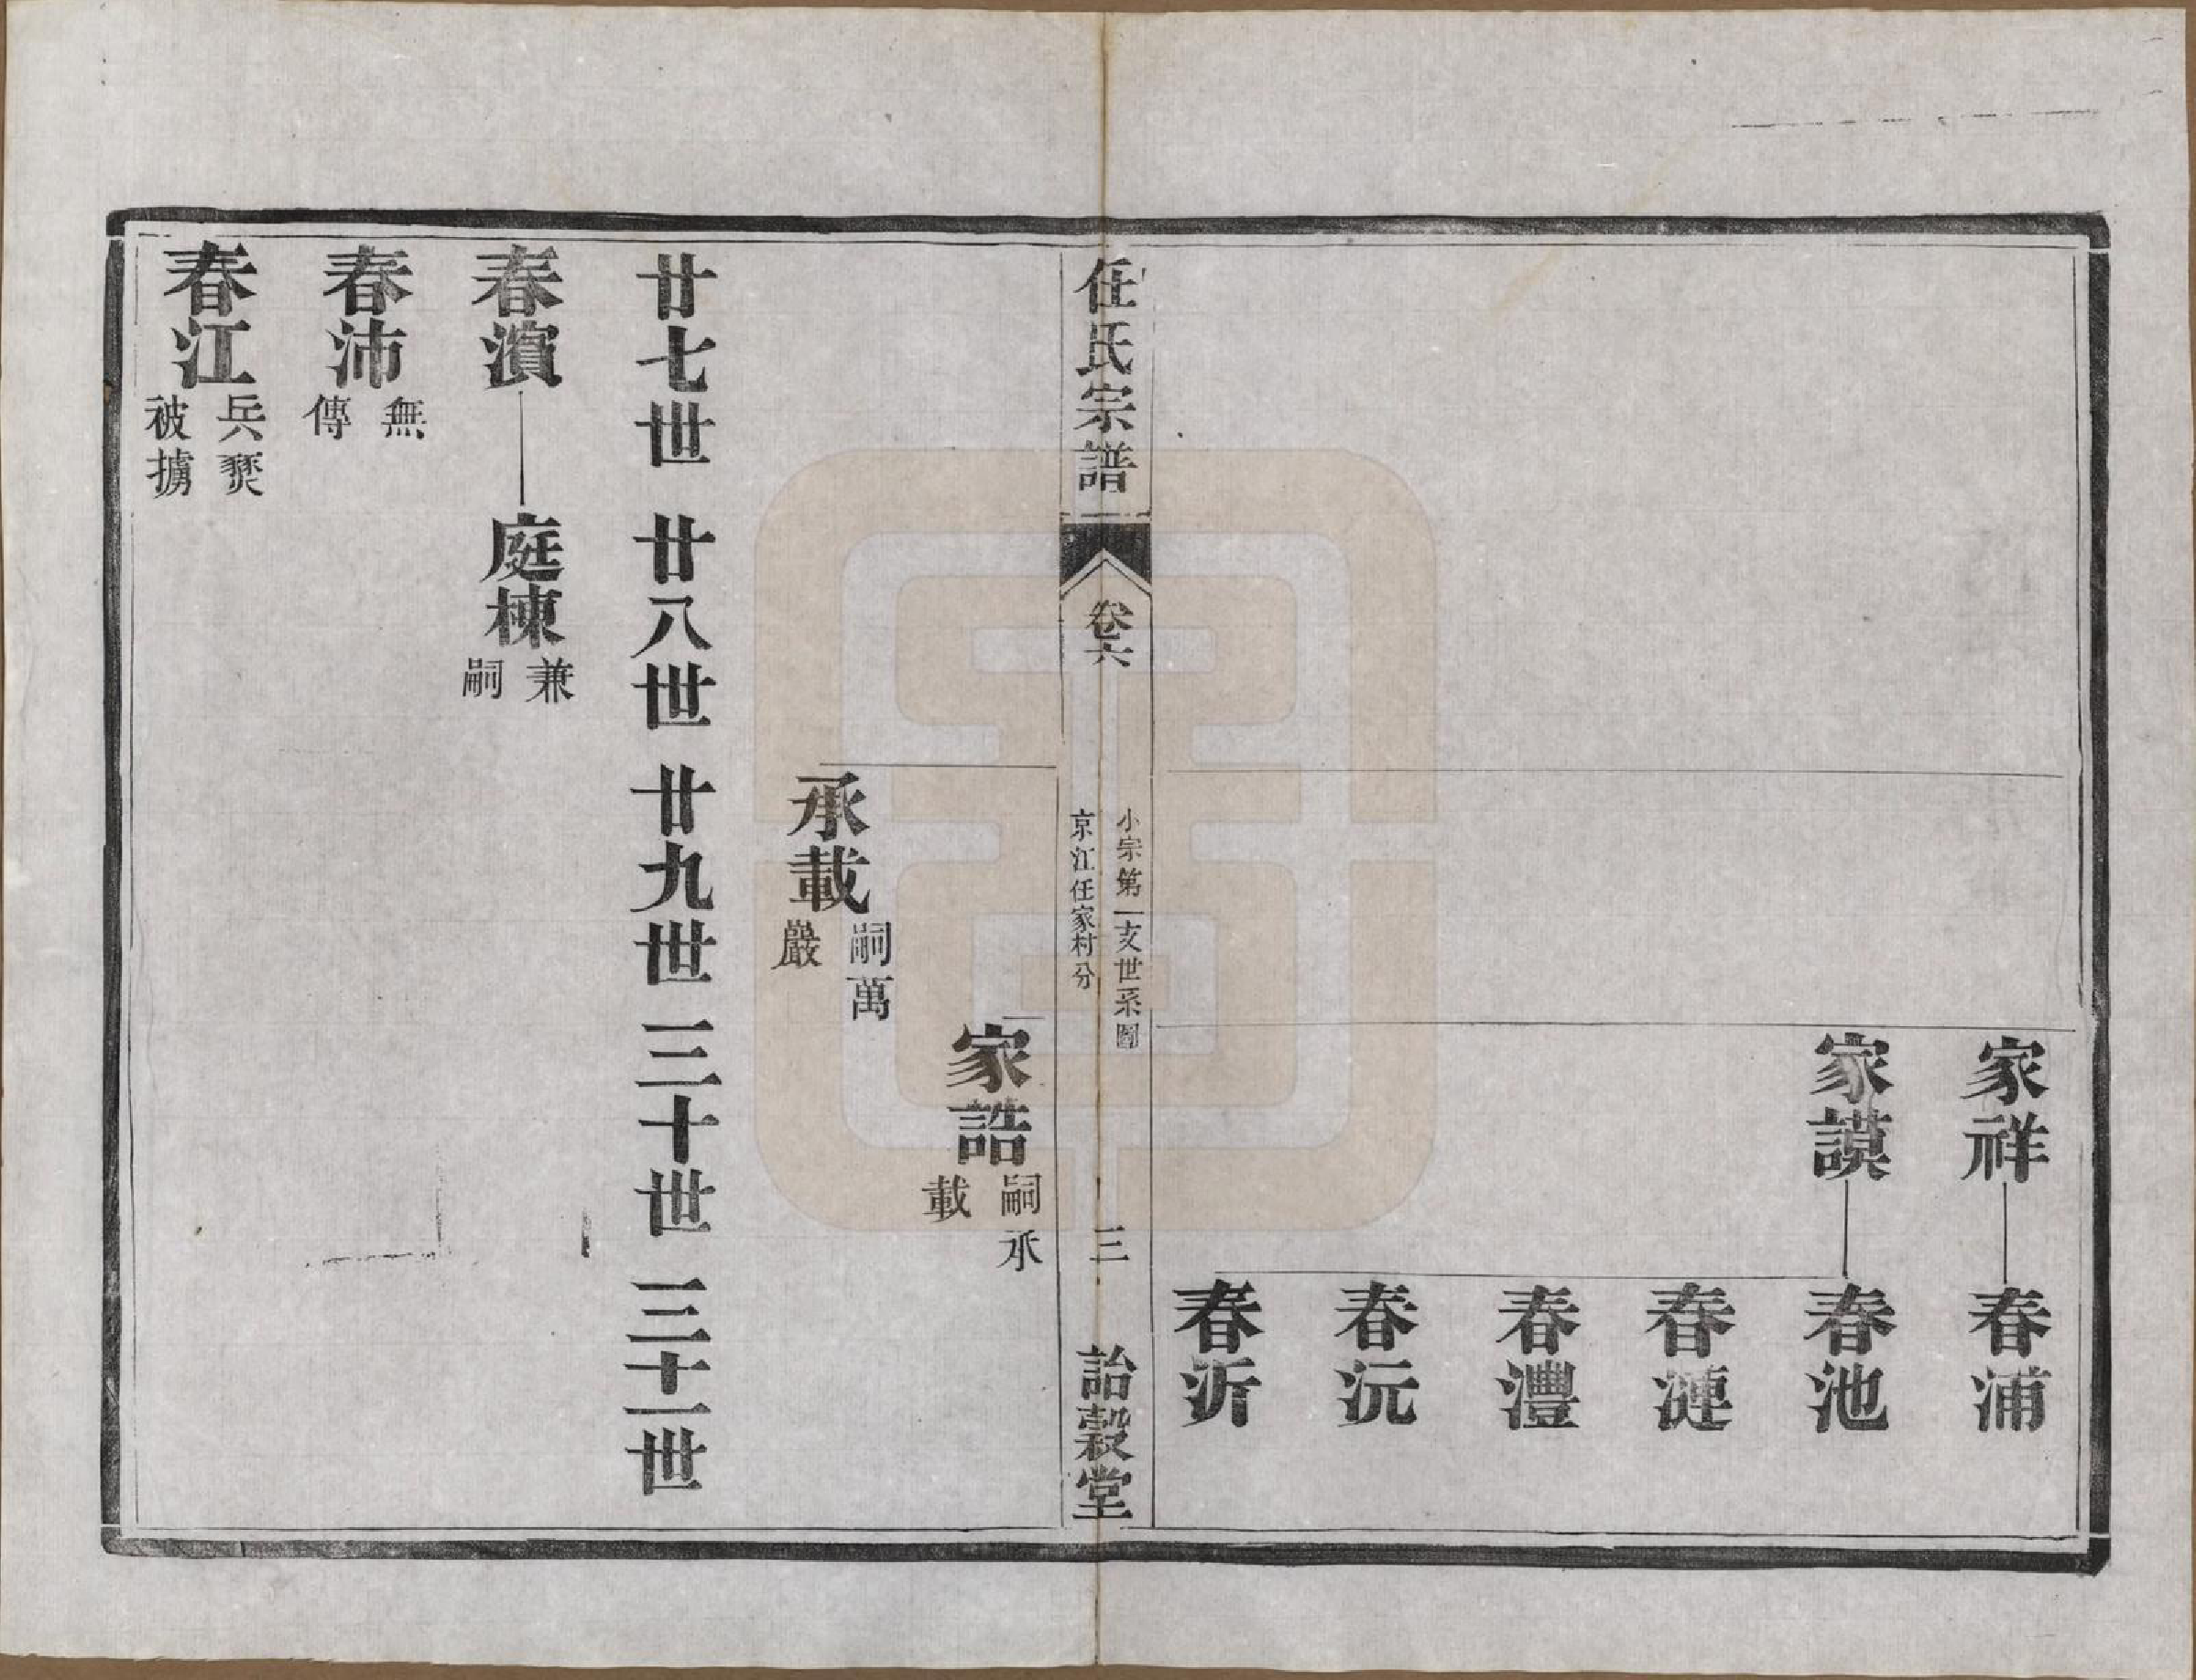 家祥 春浦
家謨 春池
春漣
春澧
春沅
春沂
任氏宗譜 卷六 小宗第一支世系圖 京江任家村分 三 詒穀堂
家誥 嗣承載
承載 嗣萬巖
廿七世 廿八世 廿九世 三十世 三十一世
春濱 庭棟 兼嗣
春沛 無傳
春江 兵燹被擄